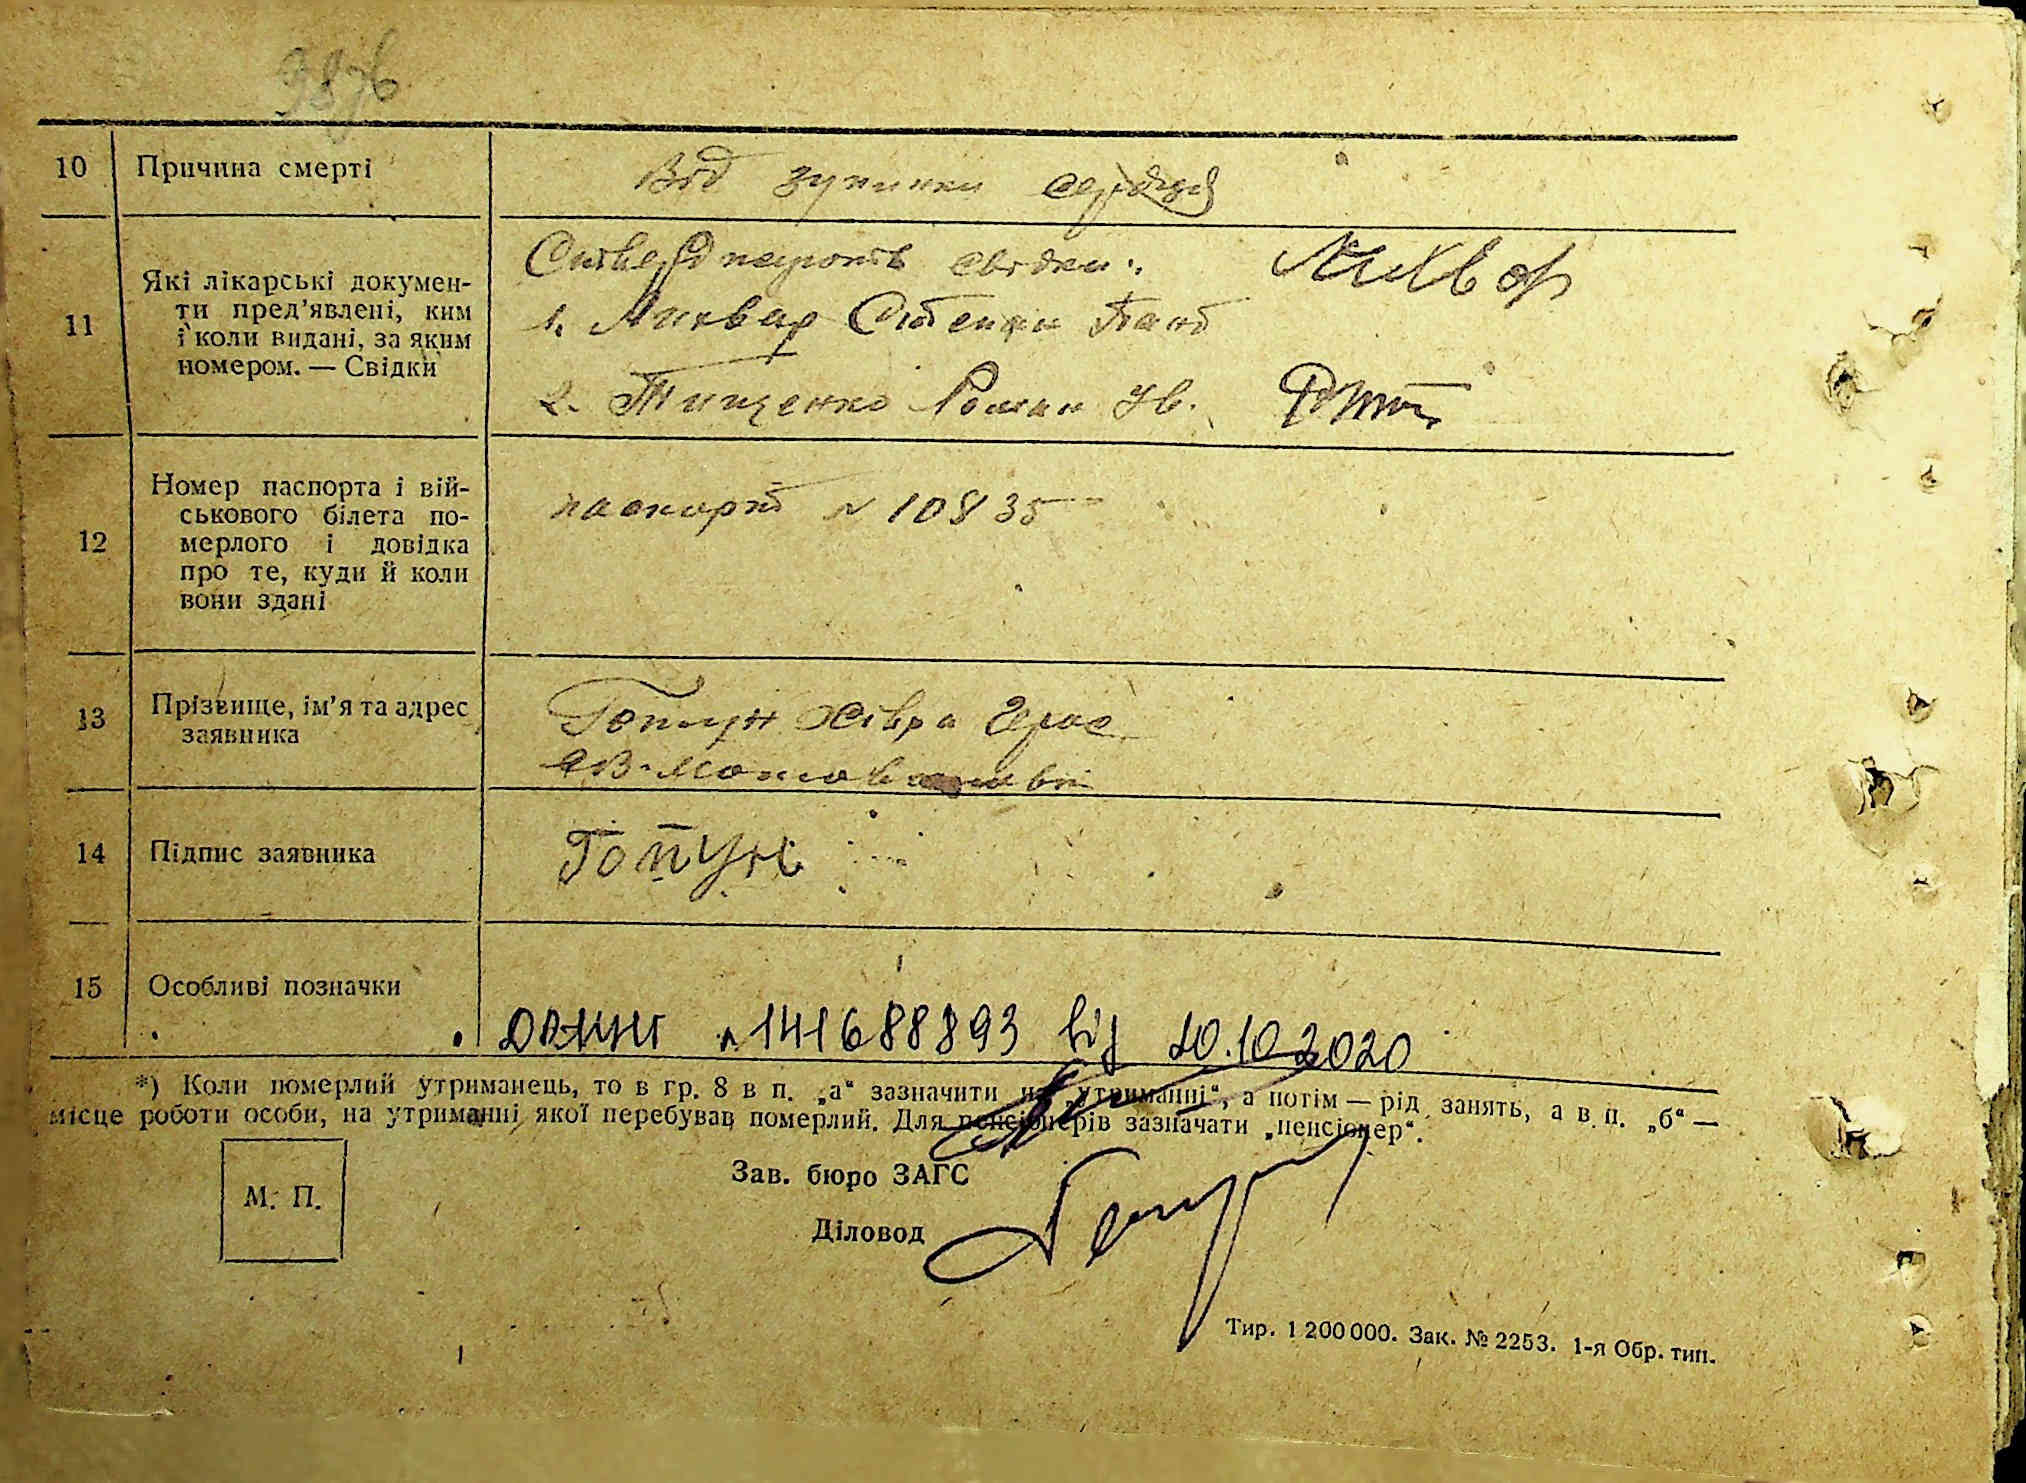 9876
10 Причина смерті Від зупинки серця
11 Які лікарські докумен-
ти пред'явлені, ким
і коли видані, за яким
номером. — Свідки
Стверджують свідки:
1. Лихвар Степан Пант
2. Тищенко Роман Ів.
12 Номер паспорта і вій-
ськового білета по-
мерлого і довідка
про те, куди й коли
вони здані
паспорт № 10835
13 Прізвище, ім'я та адрес
заявника
Гоптун Хівра Герас
14 Підпис заявника Гопун
15 Особливі позначки
№ 141688893 від 20.10.2020
*) Коли померлий утриманець, то в гр. 8 в п. „а“ зазначити на „утриманні“, а потім — рід занять, а в п. „б“ —
місце роботи особи, на утриманні якої перебував померлий. Для пенсіонерів зазначати „пенсіонер“.
М. П.
Зав. бюро ЗАГС
Діловод
Тир. 1 200 000. Зак. № 2253. 1-я Обр. тип.